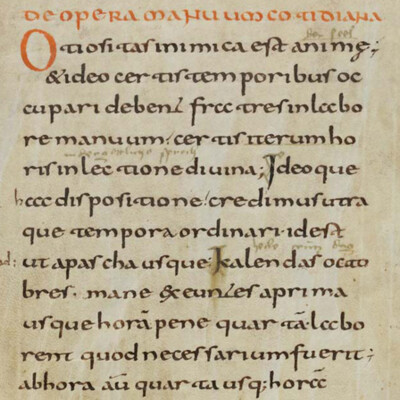 DE OPERA MANUUM COTIDIANA
Otiositas inimica est anime;
& ideo certis temporibus oc
cupari debent fratres in labo
re manuum; certis iterum ho
ris in lectione divina; Ideoque
hac dispositione credimus utra
que tempora ordinari. id est
ut a pascha usque kalendas octo
bres. mane exeuntes a prima
usque horā pene quartā labo
rent quod necessarium fuerit;
ab hora aū quarta usq; hora